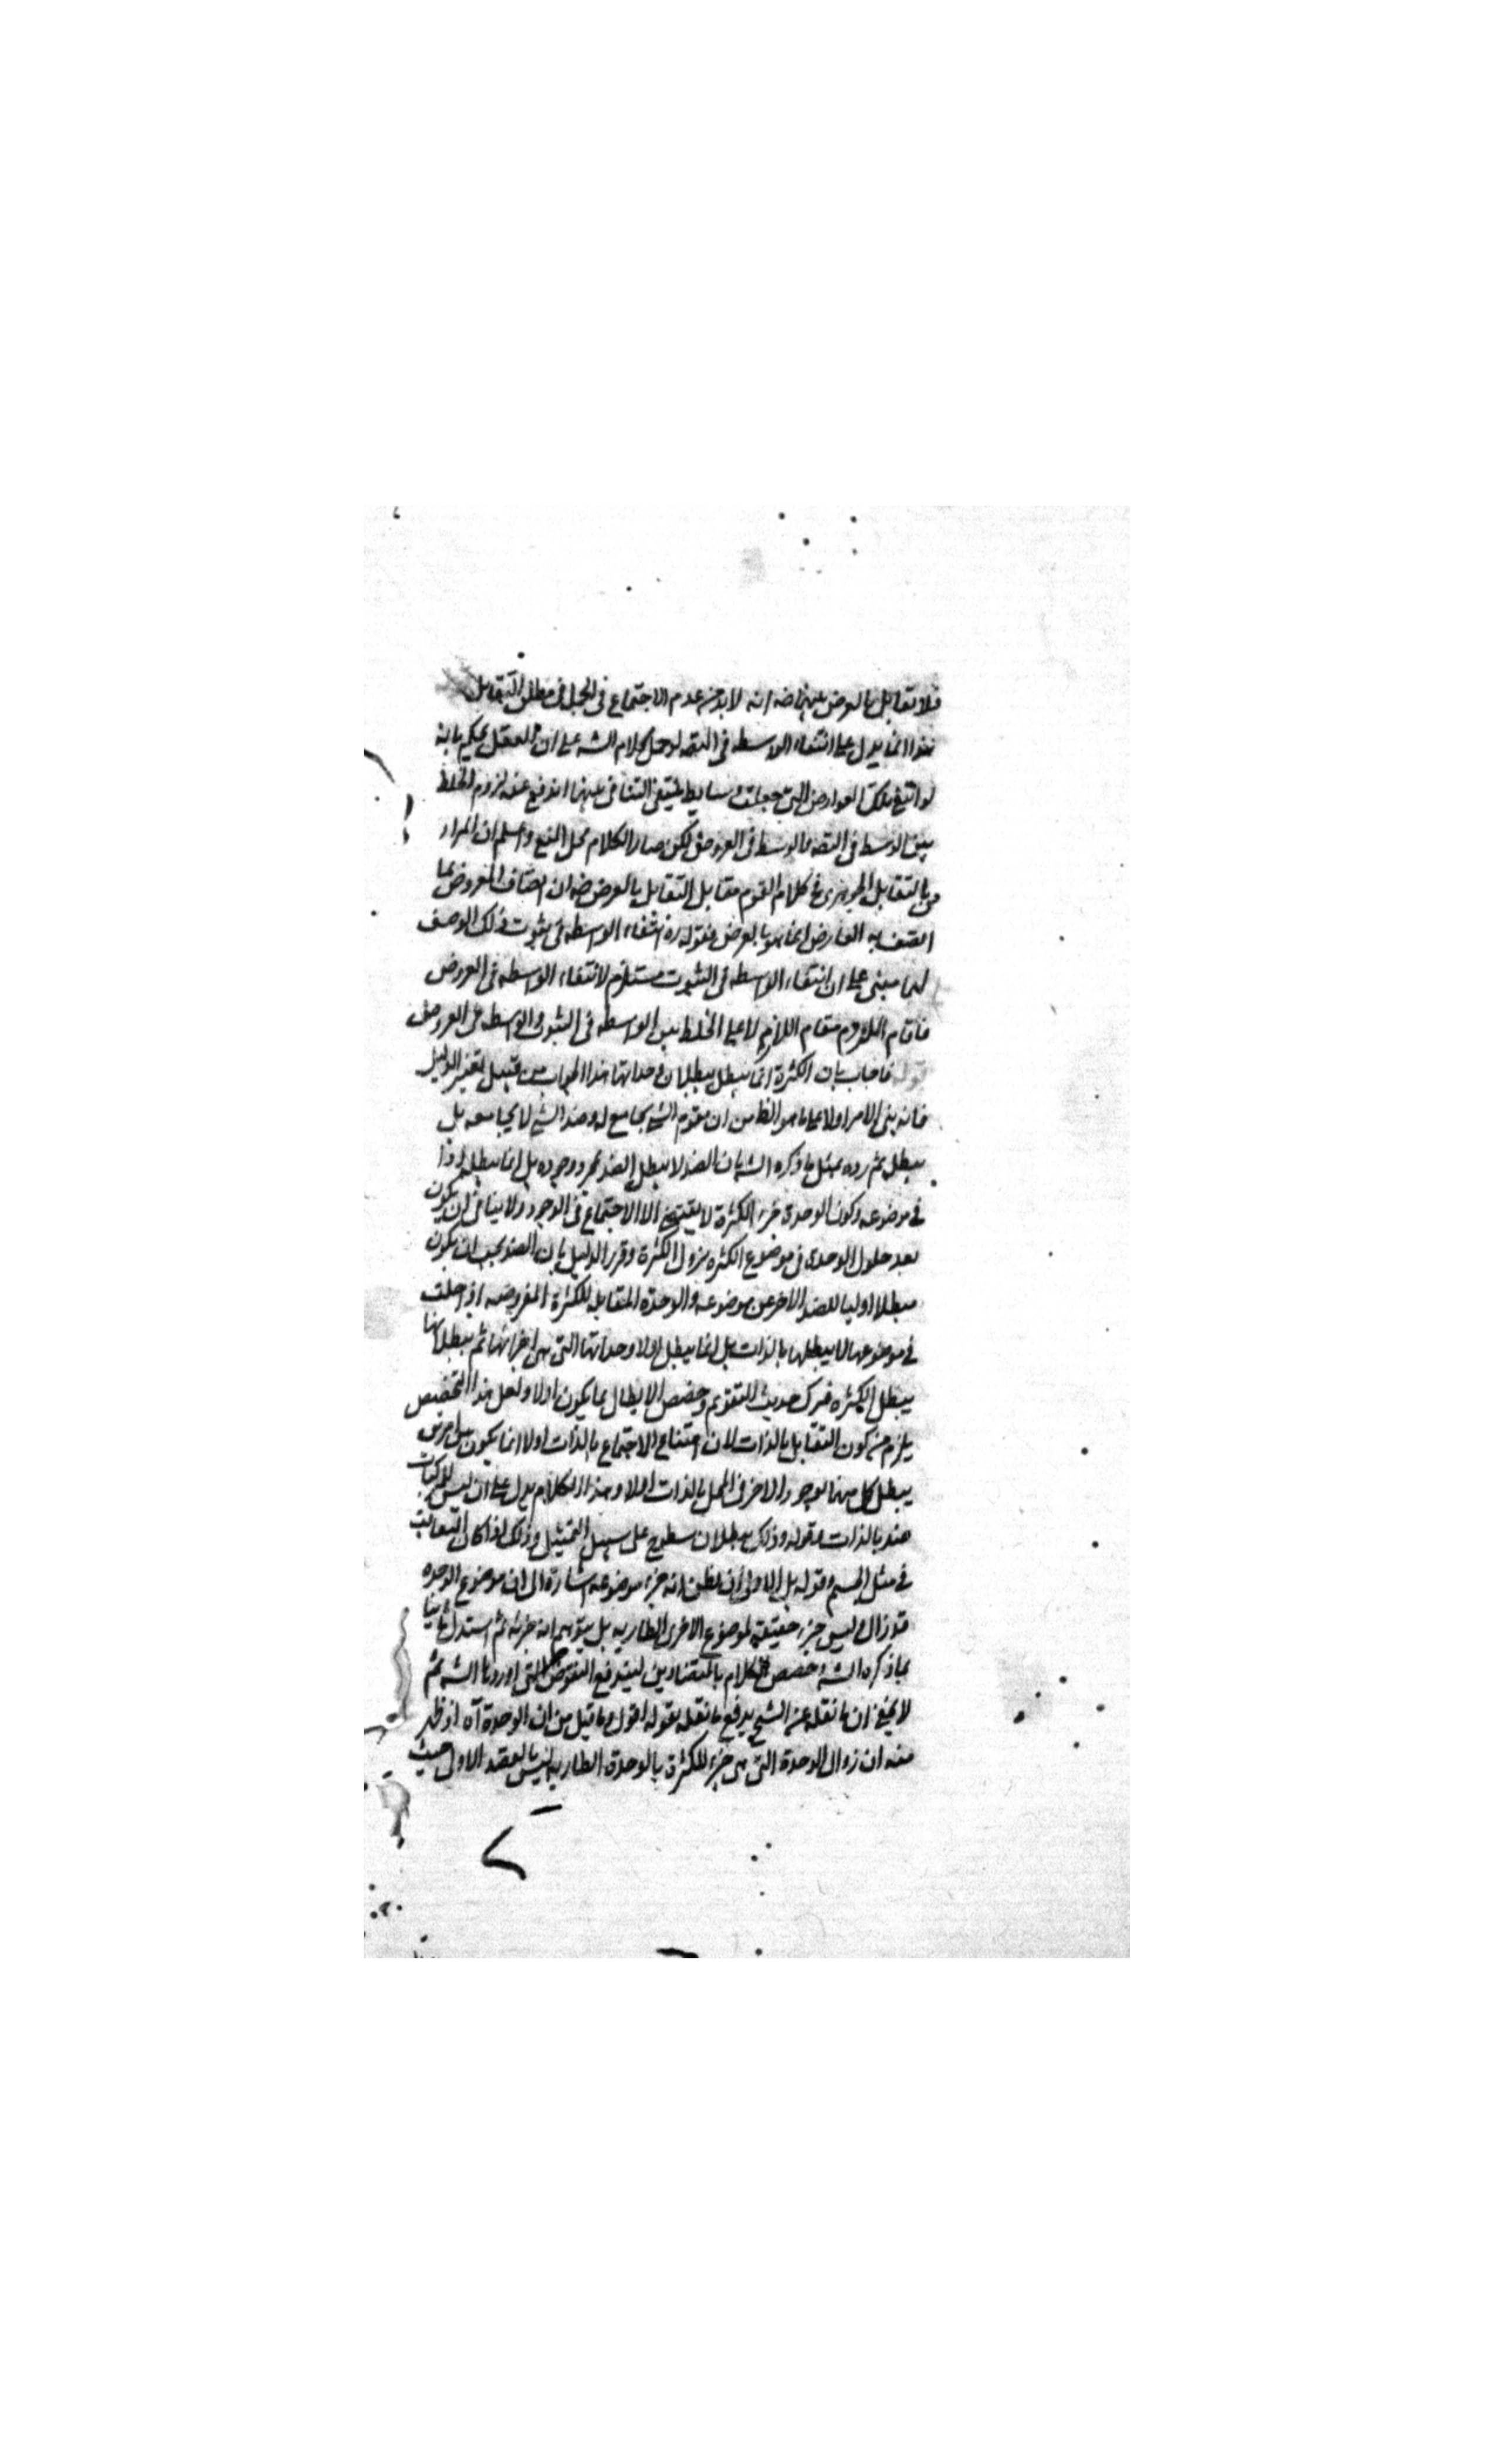 فلا تقابل بالعرض بينهما ضه انه لا بد من عدم الاجتماع فى المحل فى مطلق التقابل
هذا انما يدل على انتفاء الواسطه فى التصه لو حمل كلام الشه على ان العقل يحكم بانه
لو التى تلك العوارض التى جعلت وسايط ينتفى التنافى بينهما اندفع عنه لزوم الخلط
بين الوسط فى التصه والوسط فى العروض لكن صار الكلام محل المنع واعلم ان المراد
من بالتقابل الجوهرى فى كلام القوم مقابل التقابل بالعرض ضه ان اتصاف المعروض بما
اتصف به العارض انما هو بالعرض فقوله ره انتفاء الواسطه فى ثبوت ذلك الوصف
لهما مبنى على ان انتفاء الواسطه فى الثبوت مستلزم لانتفاء الواسطه فى العروض
فاقام الملزوم مقام اللازم لا على الخلط بين الواسطه فى الثبوت والواسطه فى العروض
قوله فاجاب بان الكثرة انما يبطل ببطلان وحداتها هذا الجواب من قبيل تغيير الدليل
فانه بنى الامر اولا على ما هو الظ من ان مقوم الشئ يجامع له وضد الشئ لا يجامعه بل
يبطل ثم رده بمثل ما ذكره الشه بان الضد لا يبطل الضد بمجرد وجوده بل انما يبطله اذا
فى موضوعه وكون الوحدة جزء الكثرة لا يقتضى الا الاجتماع فى الوجود ولا ينافى ان يكون
بعد حلول الوحدة فى موضوع الكثره يزول الكثرة وقرر الدليل بان الضد يجب ان يكون
مبطلا اوليا للضد الاخر عن موضوعه والوحدة المقابله للكثرة المفروضه اذا حلت
فى موضوعها لا يبطلها بالذات بل انما يبطل اولا وحداتها التى هى اجزائها ثم ببطلانها
يبطل الكثره فترك حديث التقوم وخصص الابطال بما يكون اولا ولعل هذا التخصيص
يلزم من كون التقابل بالذات لان امتناع الاجتماع بالذات اولا انما يكون بين امرين
يبطل كل منهما بوجود الاخر فى المحل بالذات اولا وهذا الكلام يدل على ان ليس للمركبات
ضد بالذات وقوله وذلك ببطلان سطوح على سبيل التمثيل وذلك اذا كان التعاقب
فى مثل الجسم وقوله بل الاولى ان يظن انه جزء موضوعه اشارة الى ان موضوع الوحدة
قد زال وليس جزء حقيقة لموضوع الاخرى الطاريه بل يتوهم انه جزئه ثم استدل ثانيا
بما ذكره الشه وخصص الكلام بالمتضادين ليندفع النقوض التى اوردها الشه ثم
لا يخفى ان ما نقله عن الشيخ يدفع ما نقله بقوله اقول وما قيل من ان الوحدة آه اذ ظهر
منه ان زوال الوحدة التى هى جزء للكثرة بالوحدة الطاريه ليس بالقصد الاول حيث